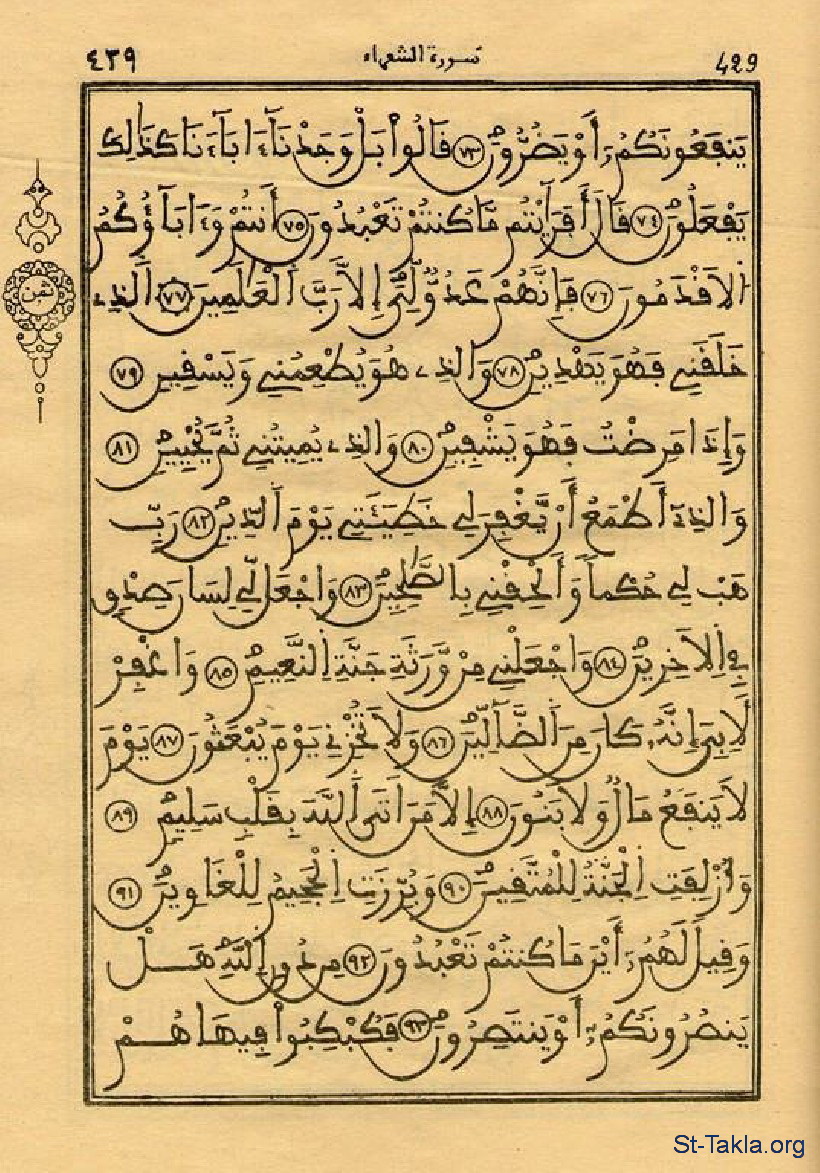 ٤٣٩ سورة الشعراء 429
يَنفَعُونَكُمُۥٓ أَوْ يَضُرُّونَ ٧٣ قَالُوا۟ بَلْ وَجَدْنَآ ءَابَآءَنَا كَذَٰلِكَ
يَفْعَلُونَ ٧٤ قَالَ أَفَرَآيْتُم مَّا كُنتُمْ تَعْبُدُونَ ٧٥ أَنتُمْ وَءَابَآؤُكُمُ
الَاقْدَمُونَ ٧٦ فَإِنَّهُمْ عَدُوٌّ لِّيَ إِلَّا رَبَّ الْعَٰلَمِينَ ٧٧ الَّذِے
خَلَقَنِے فَهُوَ يَهْدِينِ ٧٨ وَالذِے هُوَ يُطْعِمُنِے وَيَسْقِينِ ٧٩
وَإِذَا مَرِضْتُ فَهُوَ يَشْفِينِ ٨٠ وَالذِے يُمِيتُنِے ثُمَّ يُحْيِينِ ٨١
وَالذِےٓ أَطْمَعُ أَنْ يَّغْفِرَ لِے خَطِيٓـَٔتِے يَوْمَ الدِّينِ ٨٢ رَبِّ
هَبْ لِے حُكْماً وَأَلْحِقْنِے بِالصَّٰلِحِينَ ٨٣ وَاجْعَل لِّے لِسَانَ صِدْقٍ
فِے اِلَاخِرِينَ ٨٤ وَاجْعَلْنِے مِنْ وَّرَثَةِ جَنَّةِ اِلنَّعِيمِ ٨٥ وَاغْفِرْ
لِأَبِيَ إِنَّهُۥ كَانَ مِنَ الضَّآلِّينَ ٨٦ وَلَا تُخْزِنِے يَوْمَ يُبْعَثُونَ ٨٧ يَوْمَ
لَا يَنفَعُ مَالٌ وَلَا بَنُونَ ٨٨ إِلَّا مَنَ اَتَى اَللَّهَ بِقَلْبٍ سَلِيمٍ ٨٩
وَأُزْلِفَتِ اِلْجَنَّةُ لِلْمُتَّقِينَ ٩٠ وَبُرِّزَتِ اِلْجَحِيمُ لِلْغَاوِينَ ٩١
وَقِيلَ لَهُمُۥٓ أَيْنَ مَا كُنتُمْ تَعْبُدُونَ ٩٢ مِن دُونِ اِللَّهِ هَلْ
يَنصُرُونَكُمُۥٓ أَوْ يَنتَصِرُونَ ٩٣ فَكُبْكِبُوا۟ فِيهَا هُمْ
ثمن
St-Takla.org